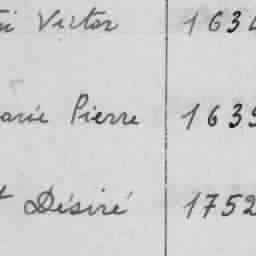 Victor 163
Pierre 163
Désiré 1752